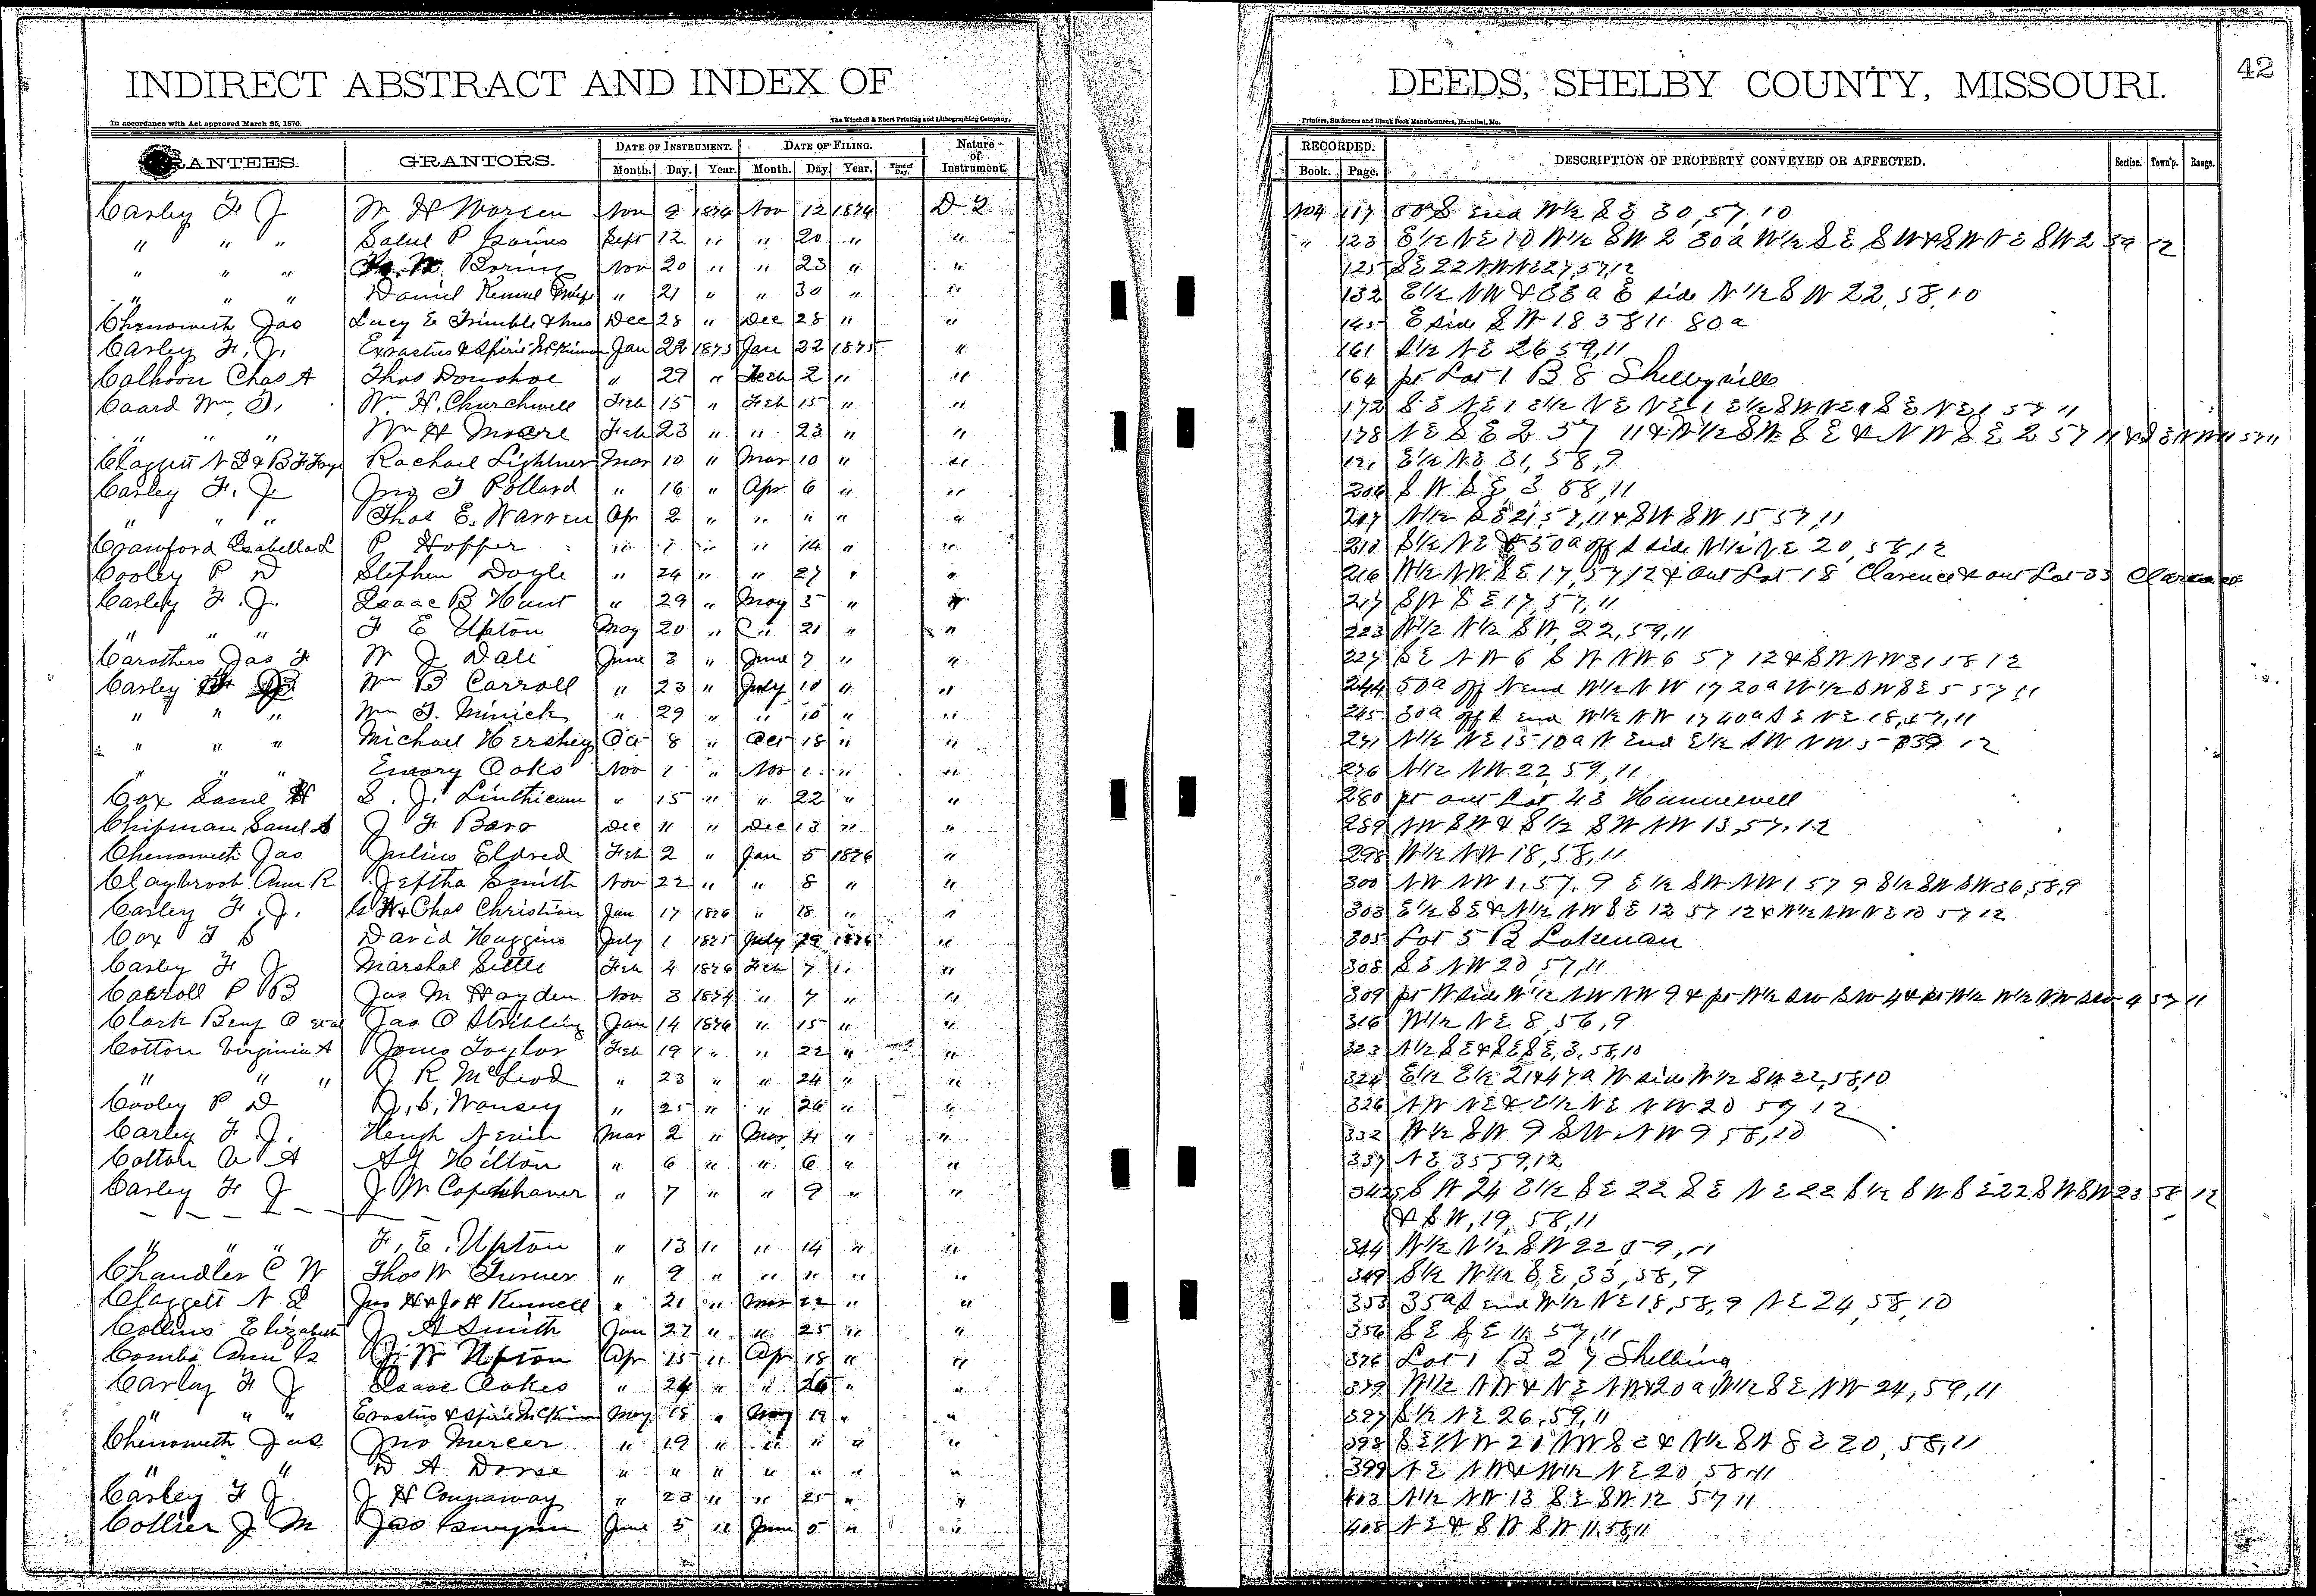 INDIRECT ABSTRACT AND INDEX OF DEEDS, SHELBY COUNTY, MISSOURI. 42
In accordance with Act approved March 25, 1870. The Winchell & Ebert Printing and Lithographing Company, Printers, Stationers and Blank Book Manufacturers, Hannibal, Mo.
DATE OF INSTRUMENT. DATE OF FILING. Nature of Instrument. RECORDED.
RANTEES. GRANTORS. Month. Day. Year. Month. Day. Year. Time of Day. Book. Page. DESCRIPTION OF PROPERTY CONVEYED OR AFFECTED. Section. Town'p. Range.
Carley F J W H Warren Nov 9 1874 Nov 12 1874 D 2 117 End W½ S E 30, 57, 10
" " " P Gaines Sept 12 " " 20 " " " 123 E½ N E 10 W½ S W 2 30 a W½ S E S W & S W N E S W 2 59 12
" " " Boring Nov 20 " " 23 " " 125 S E 22 N W N E 27, 57, 12
" " " Daniel " 21 " " 30 " " 132 E½ N W & 33 a E side W½ S W 22, 58, 10
Chenoweth Jas Lucy E Trimble & hus Dec 28 " Dec 28 " " 145 E side S W 18 58 11 80 a
Carley F. J. Erastus & Jan 22 1875 Jan 22 1875 " 161 S½ N E 26 59, 11
Calhoon Chas A Thos Donohoe " 29 " Feb 2 " " 164 pt Lot 1 B 8 Shelbyville
Caard Wm. Wm. H. Churchwell Feb 15 " Feb 15 " " 172 S E N E 1 E½ N E N E 1 E½ S W N E 1 S E N E 1 57 11
" " " Wm H Moore Feb 23 " " 23 " " 178 N E S E 2 57 11 & W½ S W S E & N W S E 2 57 11
Claggett N L & B F Rachael Lightner Mar 10 " Mar 10 " " E½ N E 31, 58, 9
Carley F. J Jno T Pollard " 16 " Apr 6 " " 206 S W S E, 3, 58, 11
" " " Thos E. Warren Apr 2 " " " " " 207 W½ S E 21, 57, 11 & S W S W 15 57, 11
Crawford Isabella L P Hopper " 14 " 210 S½ N E & 50 a off S side N½ N E 20, 58, 12
Cooley P D Stephen Doyle " 24 " " 27 " 216 W½ N W S E 17, 57 12 & out Lot 18 Clarence & out Lot 33 Clarence
Carley F. J. Isaac B Hunt " 29 " May 5 " " 217 S W S E 17, 57, 11
" " " F E Upton May 20 " " 21 " " 223 W½ N½ S W, 22, 59, 11
Carothers Jas F W J Dale June 3 " June 7 " " 227 S E N W 6 S W N W 6 57 12 & S W N W 31 58 12
Carley Wm B Carroll " 23 " July 10 " " 244 50 a off N end W½ N W 17 20 a W½ S W S E 5 57 11
" " " Wm T. Minick " 29 " " 10 " " 245 30 a off S end W½ N W 17 40 a S E N E 18, 57, 11
" " " Michael Hershey Oct 8 " Oct 18 " " 271 N½ N E 15 10 a N End E½ S W N W 5
" " " Emory Oaks Nov 1 " Nov 1 " " 276 N½ N W 22, 59, 11
Cox Saml H S. J. Linthicum " 15 " " 22 " " 280 pt out Lot 43 Hunnewell
Chipman Saml S J F Baro Dec 11 " Dec 13 " " 289 N W S W & S½ S W N W 13, 57, 12
Chenoweth Jas Julius Eldred Feb 2 " Jan 5 1876 " 298 W½ N W 18, 58, 11
Claybrook Ann R Jeptha Smith Nov 22 " " 8 " " 300 N W N W 1, 57, 9 E½ S W N W 1 57 9 S½ S W S W 36, 58, 9
Carley F. J. & Chas Christian Jan 17 1876 " 18 " " 303 E½ S E & N½ N W S E 12 57 12 & W½ N W N E 10 57 12
Cox David Huggins July 1 1875 July 29 1876 " 305 Lot 5 B Lakenan
Carley F J Marshal Settle Feb 4 1876 Feb 7 " " 308 S E N W 20, 57, 11
Carroll P B Jas M Hayden Nov 3 1874 " 7 " " 309 pt W side W½ N W N W 9 & pt W½ S W S W 4 & pt W½ W½ N W S W 9 57 11
Clark Benj O et al Jas O Stribling Jan 14 1876 " 15 " " 316 W½ N E 8, 56, 9
Cotton Virginia A Jones Taylor Feb 19 " " 22 " " 323 N½ S E & S E S E, 3, 58, 10
" " " J R McLeod " 23 " " 24 " " 324 E½ E½ 21 & 47 a W side W½ S W 22, 58, 10
Cooley P D Wansey " 25 " " 26 " " 326 N W N E & E½ N E N W 20 59 12
Carley F. J. Hugh Mar 2 " Mar 4 " " 332 W½ S W 9 S W N W 9 58, 10
Cotton A Hilton " 6 " " 6 " " 337 N E 35 59, 12
Carley F J J M Copenhaver " 7 " " 9 " " 342 S W 24 E½ S E 22 S E N E 22 S½ S W S E 22 S W S W 23 58 12
& S W, 19, 58, 11
" " " F. E. Upton " 13 " " 14 " " 344 W½ N½ S W 22 59, 11
Chandler C W Thos W Turner " 9 " " " " " 349 S½ W½ S E, 33, 58, 9
Claggett N L Jno H & Jo H Kennell " 21 " Mar 22 " " 353 35 a S end W½ N E 18, 58, 9 N E 24, 58, 10
Collins Elizabeth J A Smith Jan 27 " " 25 " " 356 S E S E 11, 57, 11
Combs Ann Upton Apr 15 " Apr 18 " " 376 Lot 1 B 27 Shelbina
Carley F J Isaac Oakes " 24 " " 26 " " 379 W½ N W & N E N W & 20 a W½ S E N W 24, 59, 11
" " " Erastus & May 18 " May 19 " " 397 S½ N E 26, 59, 11
Chenoweth Jas Jno Mercer " 19 " " " " " 398 S E N W 20 N W S E & N½ S W S E 20, 58, 11
" " D A " " " " " " " 399 N E N W & W½ N E 20, 58, 11
Carley F J J H Connaway " 23 " " 25 " " 403 N½ N W 13 S E S W 12 57 11
Collier J M Jas Gwynn June 5 " June 5 " " 408 N E & S W S W 11, 58, 11